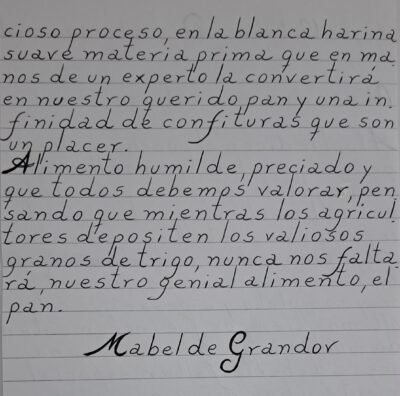 cioso proceso, en la blanca harina
suave materia prima que en ma
nos de un experto la convertirá
en nuestro querido pan y una in.
finidad de confituras que son
un placer.
Alimento humilde, preciado y
que todos debemos valorar, pen
sando que mientras los agricul
tores depositen los valiosos
granos de trigo, nunca nos falta.
rá, nuestro genial alimento, el
pan.
Mabel de Grandor